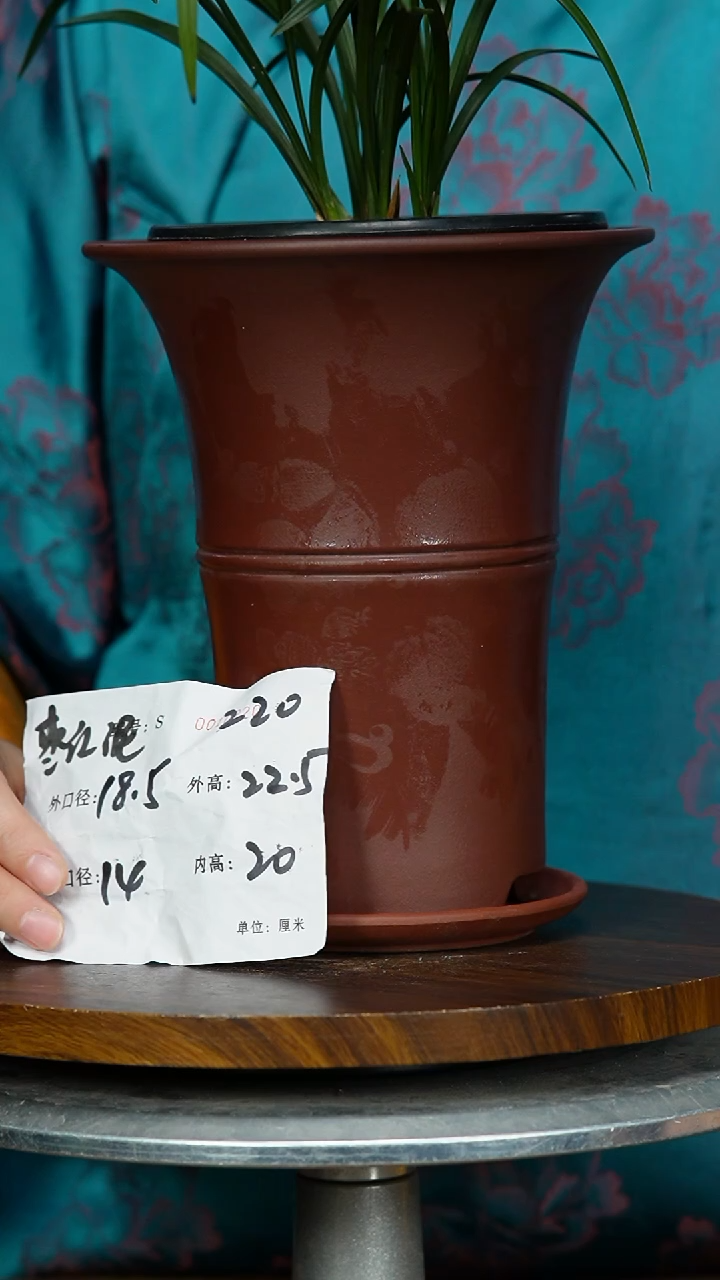 枣红泥 号: S 00 220
外口径: 18.5 外高: 22.5
口径: 14 内高: 20
单位: 厘米